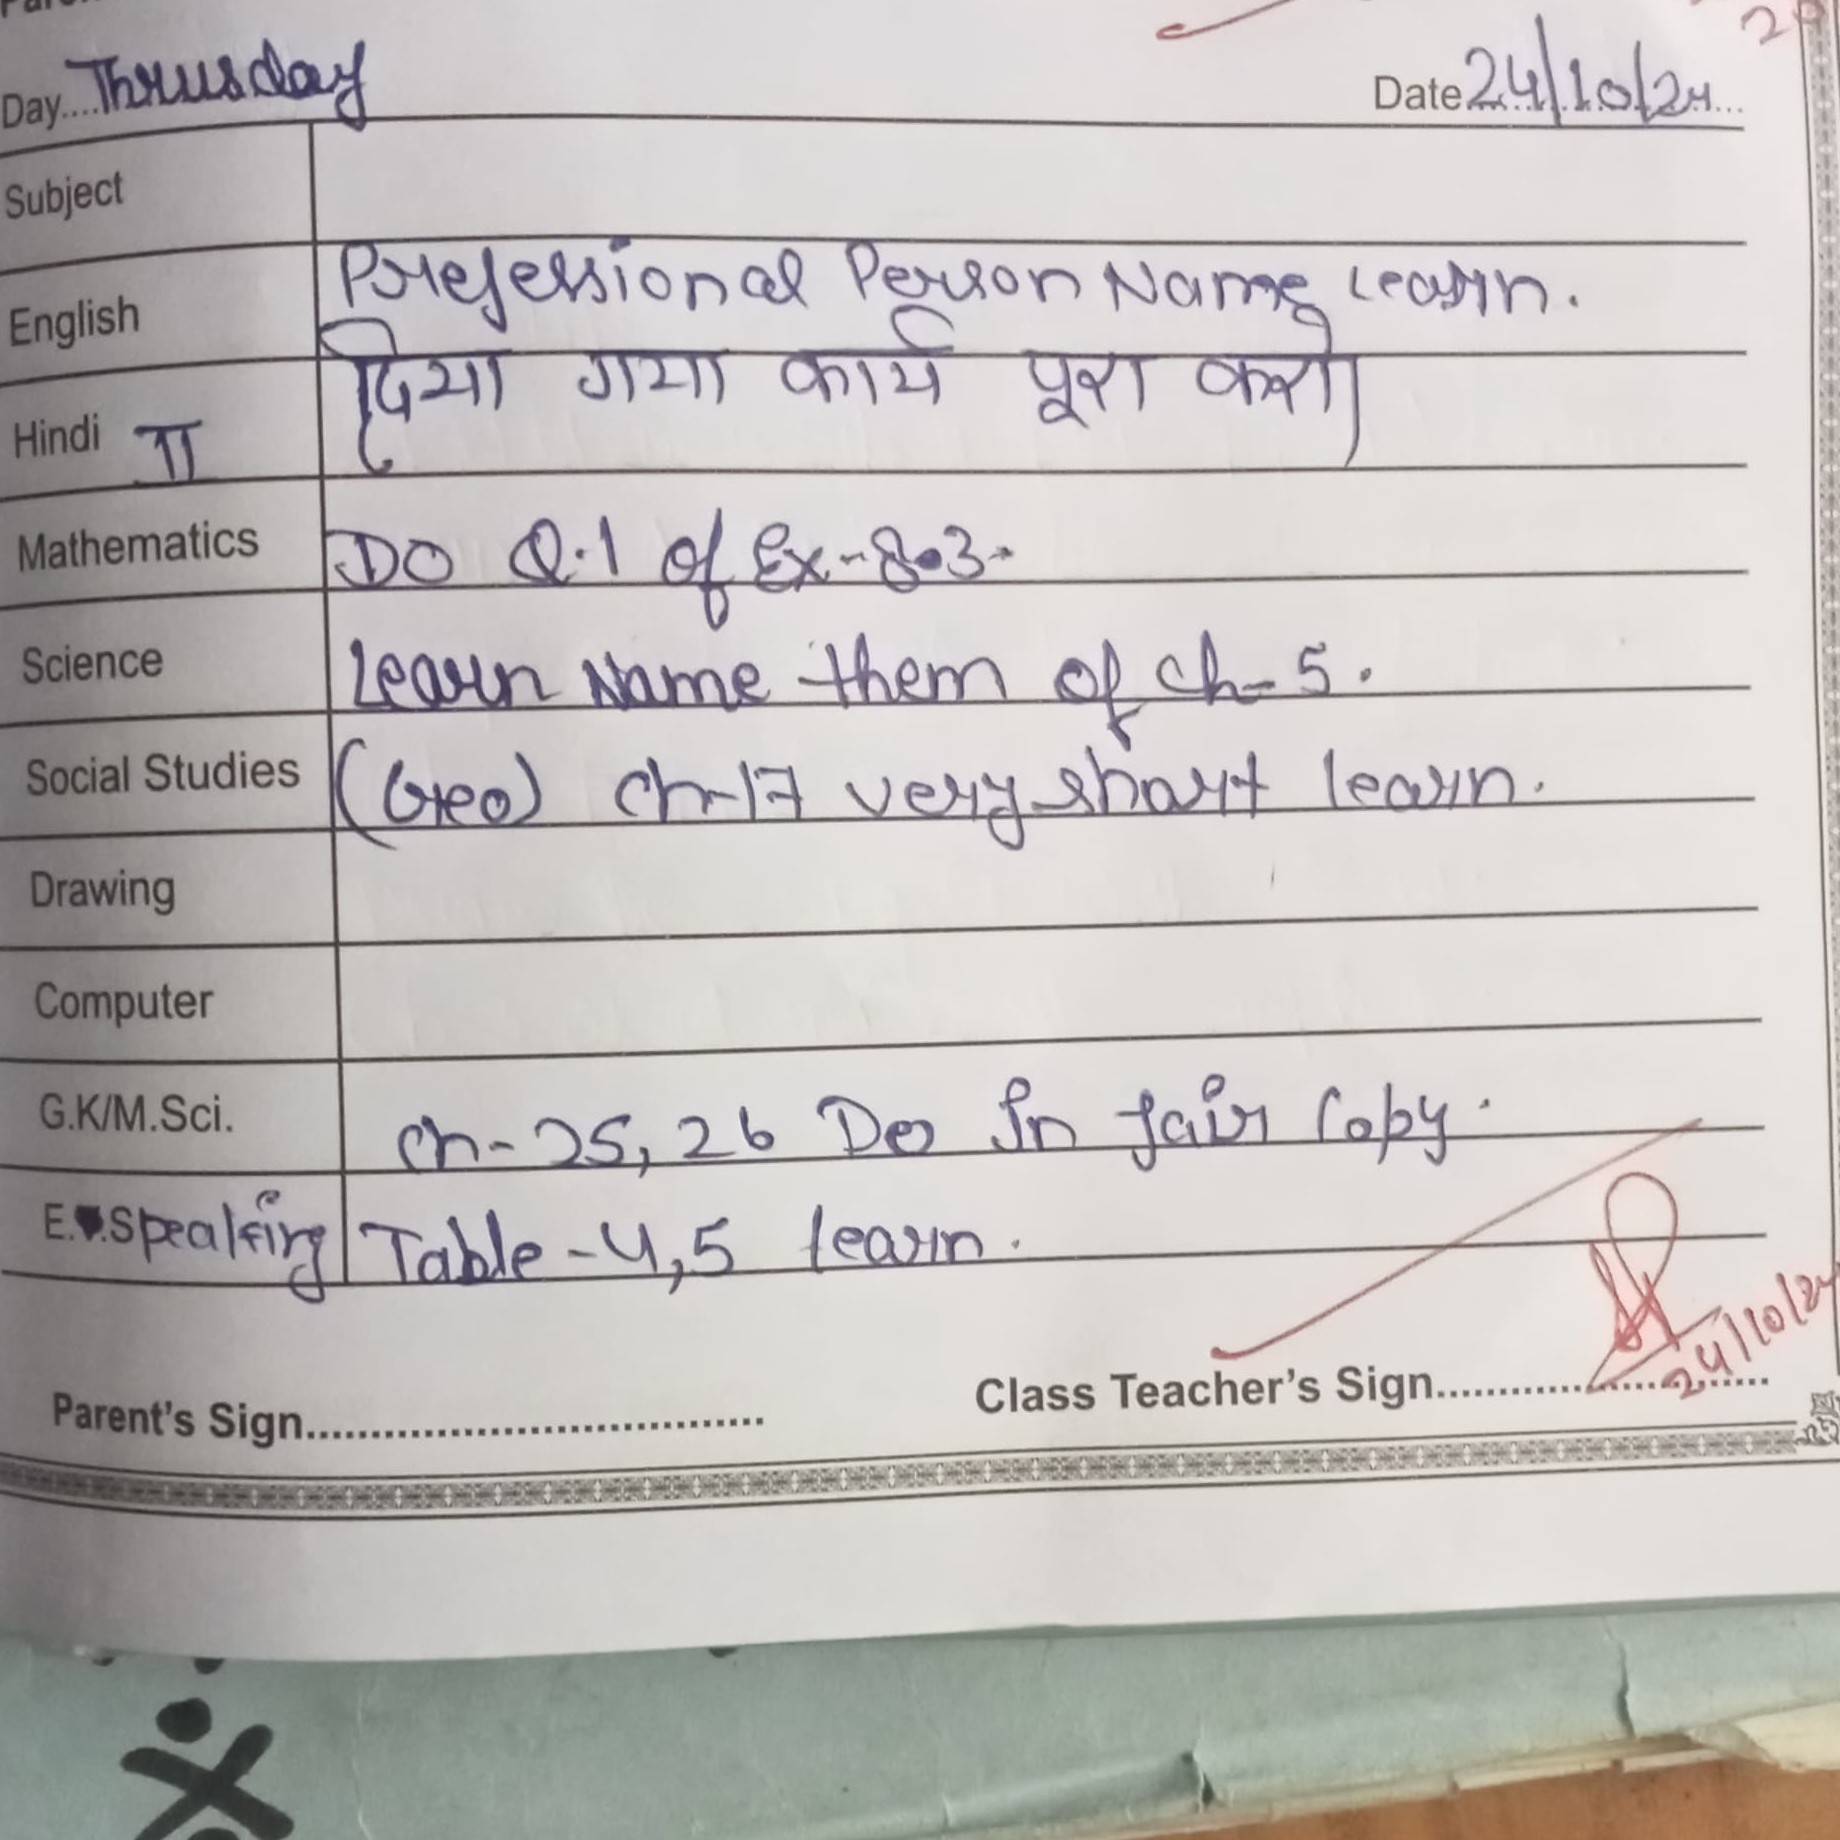 Day....Thrusday
Date 24/10/24...
Subject
English Prefessional Person Name Learn.
Hindi II दिया गया कार्य पूरा करो।
Mathematics DO Q.1 of Ex-8.3.
Science Learn Name them of ch-5.
Social Studies (Geo) ch-17 very short learn.
Drawing
Computer
G.K/M.Sci. ch-25, 26 Do In fair Copy.
E. Speaking Table-4,5 learn.
Parent's Sign....................................
Class Teacher's Sign............................
24/10/24